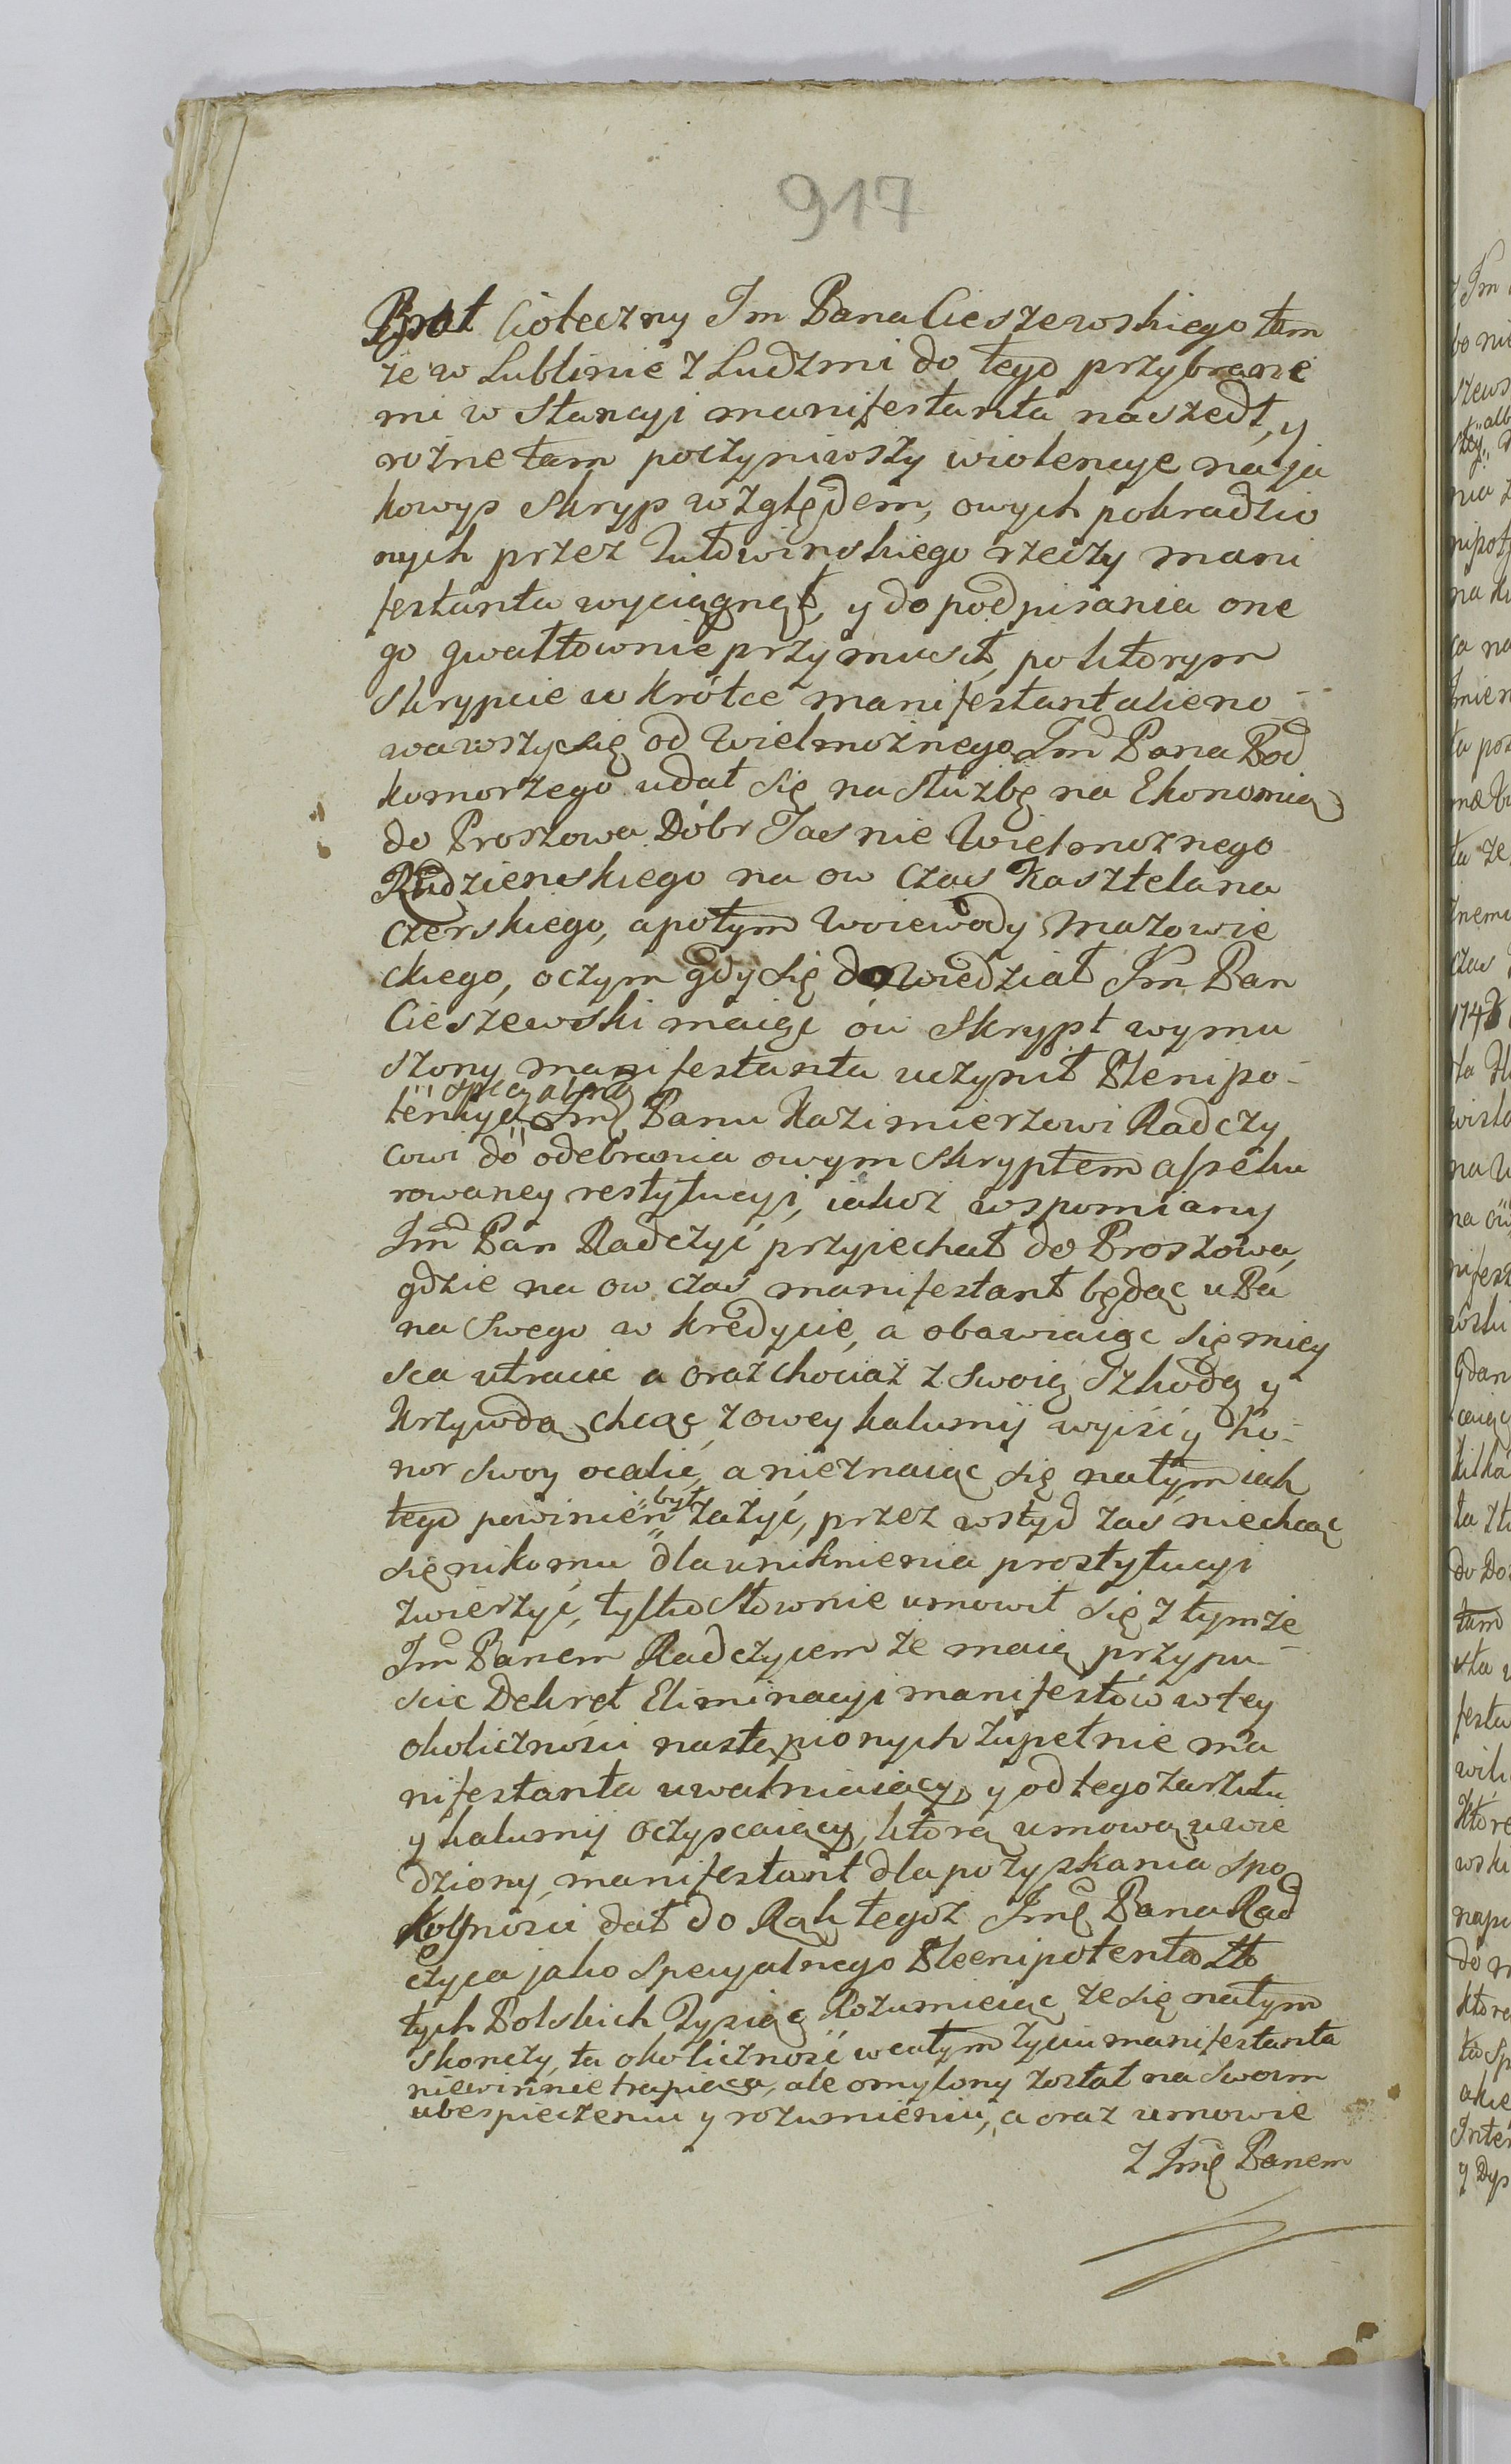 917
Brat Cioteczny Im Pana Cieszewskiego tam
że w Lublinie z Ludzmi do tego przybrane
mi w Stancyi manifestanta naszedł, y
rożne tam poczyniwszy wiolencye na ja
kowyś Skryp względem, owych pokradzio
nych przez Tutowinskiego rzeczy mani
festanta wyciągnął, y do podpisania one
go gwałtownie przymusił, po ktorym
Skrypcie w krótce manifestant alieno
wawszy się od Wielmożnego Im Pana Pod
komorzego udał się na służbę na Ekonomią
do Proszowa Dóbr Jasnie Wielmożnego
Rudzienskiego na ow czas Kasztelana
Czerskiego, a potym Woiewody Mazowie
ckiego, o czym gdy się dowiedział Im Pan
Cieszewski maiąc ów Skrypt wymu
szony manifestanta uczynił Plenipo-
tencyą specyalną Imę Panu Kazimierzowi Radczy
cowi do odebrania owym Skryptem asseku
rowaney restytucyi, iakoż wspomiany
Im Pan Radczyć przyiechał do Proszowa,
gdzie na ow czas manifestant będąc u Pa
na Swego w kredycie, a obawiaiąc się miey
sca utracic a oraz chociaż z swoią Szkodą y
Krzywdą chcąc z owey kalumij wyiść y ho-
nor swoy ocalić, a nieznaiąc się na tym iak
tego powinien był zażyć, przez wstyd zaś niechcąc
się nikomu dla uniknienia prostytucyi
zwierzyć, tylko Słownie umowił się z tymże
Im Panem Radczycem że maią przypu-
scic Dekret Eliminacyi manifestów w tey
okoliczności nastąpionych zupełnie ma
nifestanta uwalniaiący, y od tego zarzutu
y kalumij oczyscaiący, ktorą umową uwie
dziony, manifestant dla pozyskania Spo
koyności dał do Rąk tegoż Imę Pana Rad
czyca jako Specyalnego Pleenipotenta Zło
tych Polskich Tysiąc Rozumieiąc że się na tym
skonczy, ta okoliczność w całym życiu manifestanta
niewinnie trapiąca, ale omylony został na Swoim
ubespieczeniu y rozumieniu, a oraz umowie
Z Imę Panem